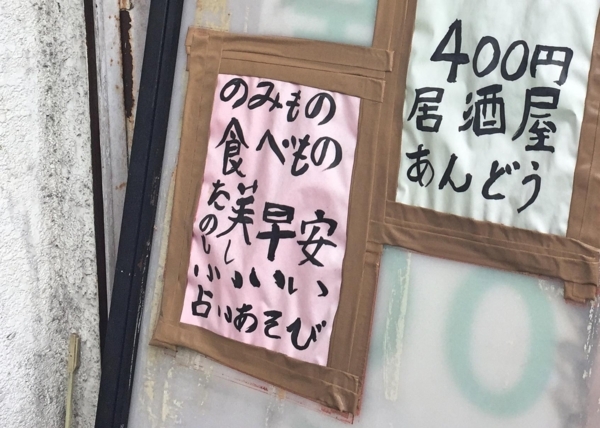 のみもの
食べもの
安い
早い
美しい
たのしい
占いあそび
400円
居酒屋
あんどう